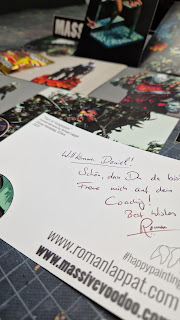 MASSI
Willkommen Daniel!
Schön, dass Du da bist
Freue mich auf dein
Coaching!
Best Wishes
Roman
#happypainting
www.romanlappat.com
www.massivevoodoo.com